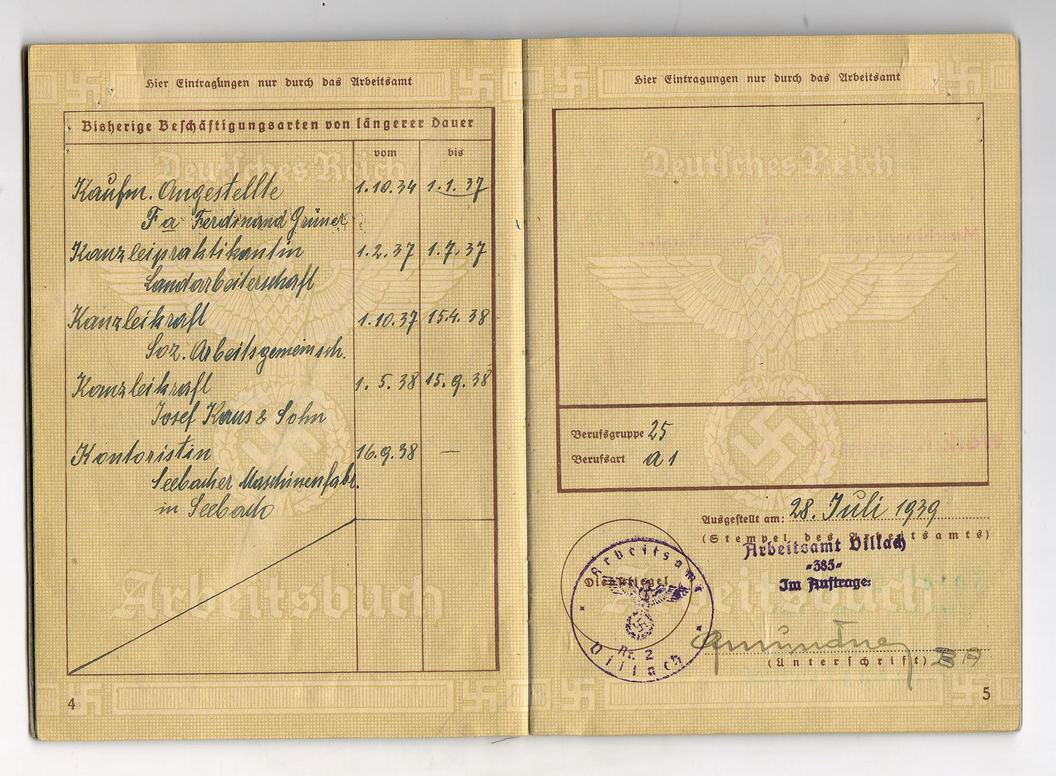 Hier Eintragungen nur durch das Arbeitsamt
Bisherige Beschäftigungsarten von längerer Dauer
vom bis
Deutsches Reich
Kaufm. Angestellte 1.10.34 1.1.37
Fa Ferdinand Grüner
Kanzleipraktikantin 1.2.37 1.7.37
Landarbeiterschaft
Kanzleikraft 1.10.37 15.4.38
Soz. Arbeitsgemeinsch.
Kanzleikraft 1.5.38 15.9.38
Josef Kaus & Sohn
Kontoristin 16.9.38 —
Seebacher Maschinenfabr.
in Seebach
Arbeitsbuch
4
Hier Eintragungen nur durch das Arbeitsamt
Deutsches Reich
Berufsgruppe 25
Berufsart a 1
Ausgestellt am: 28. Juli 1939
(Stempel des Arbeitsamts)
Arbeitsamt Villach
-385-
Im Auftrage:
Arbeitsbuch
Dienstsiegel
Arbeitsamt
Nr. 2
Villach
(Unterschrift)
5